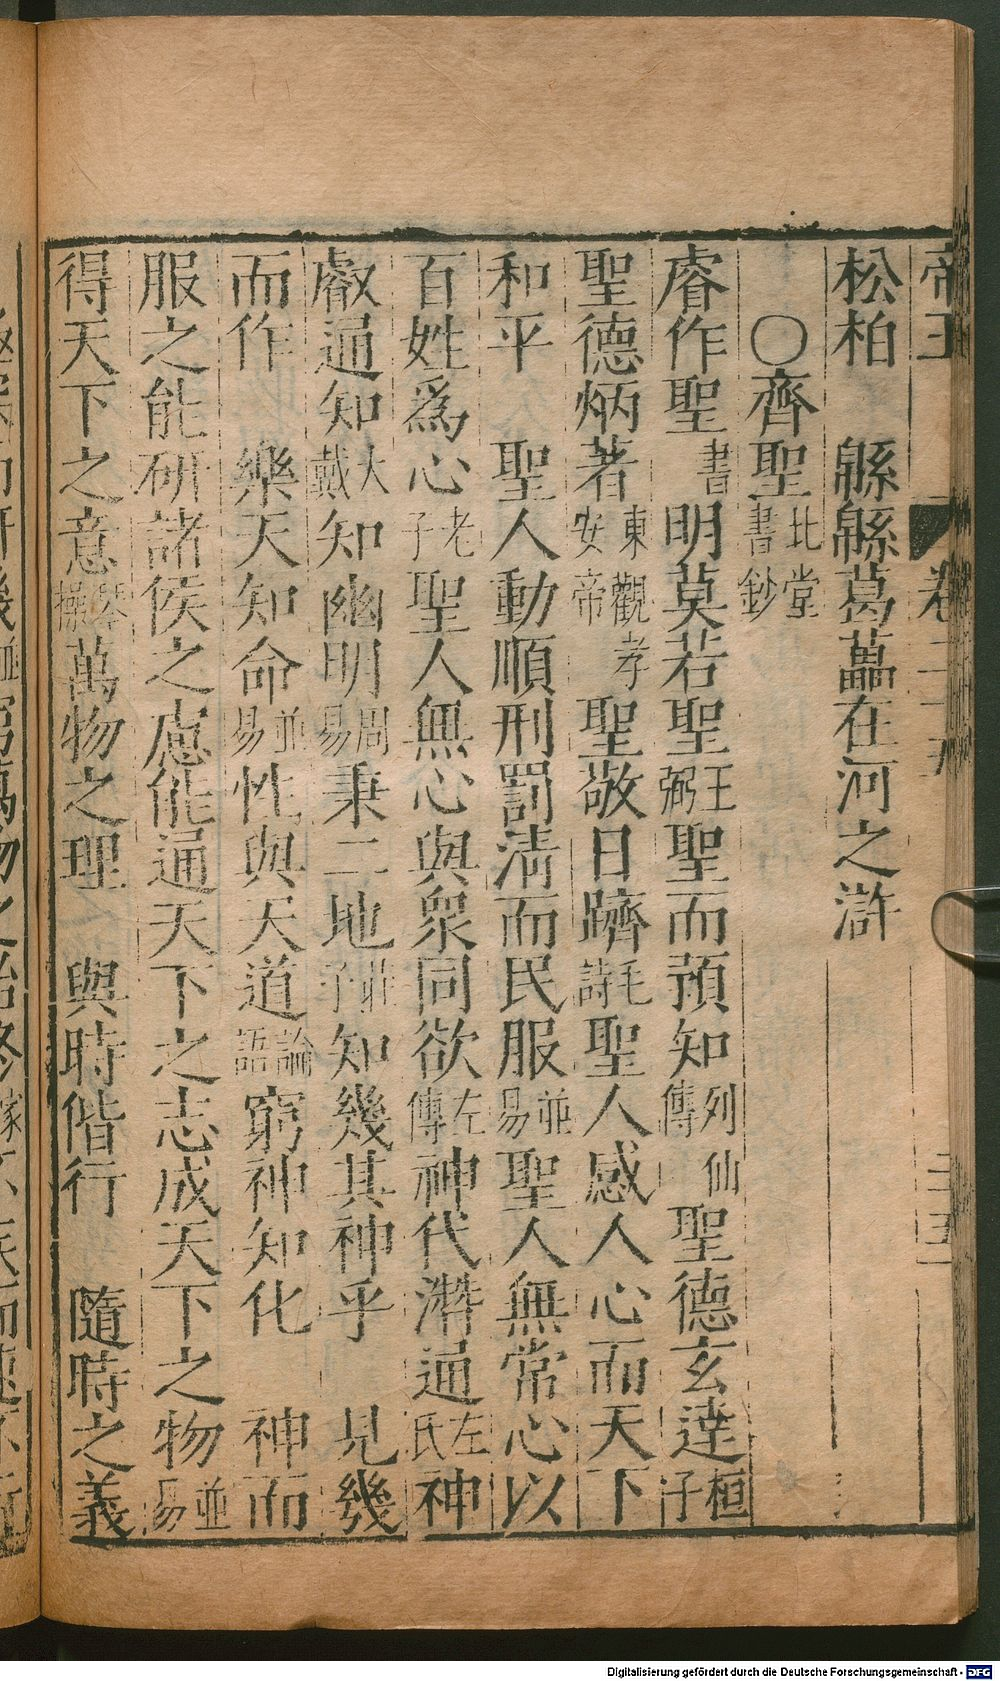 帝王 卷二十九 三五
松柏 緜緜葛藟在河之滸
〇齊聖北堂書鈔
睿作聖書 明莫若聖王弼聖而預知列仙傳 聖德玄達桓子
聖德炳著東觀孝安帝 聖敬日躋毛詩聖人感人心而天下
和平 聖人動順刑罰清而民服並易聖人無常心以
百姓爲心老子聖人無心與衆同欲左傳神代潛通左氏神
叡通知大戴知幽明周易秉二地莊子知幾其神乎 見幾
而作 樂天知命並易性與天道論語窮神知化 神而
服之能研諸侯之慮能通天下之志成天下之物並易
得天下之意琴操萬物之理 與時偕行 隨時之義
Digitalisierung gefördert durch die Deutsche Forschungsgemeinschaft - DFG